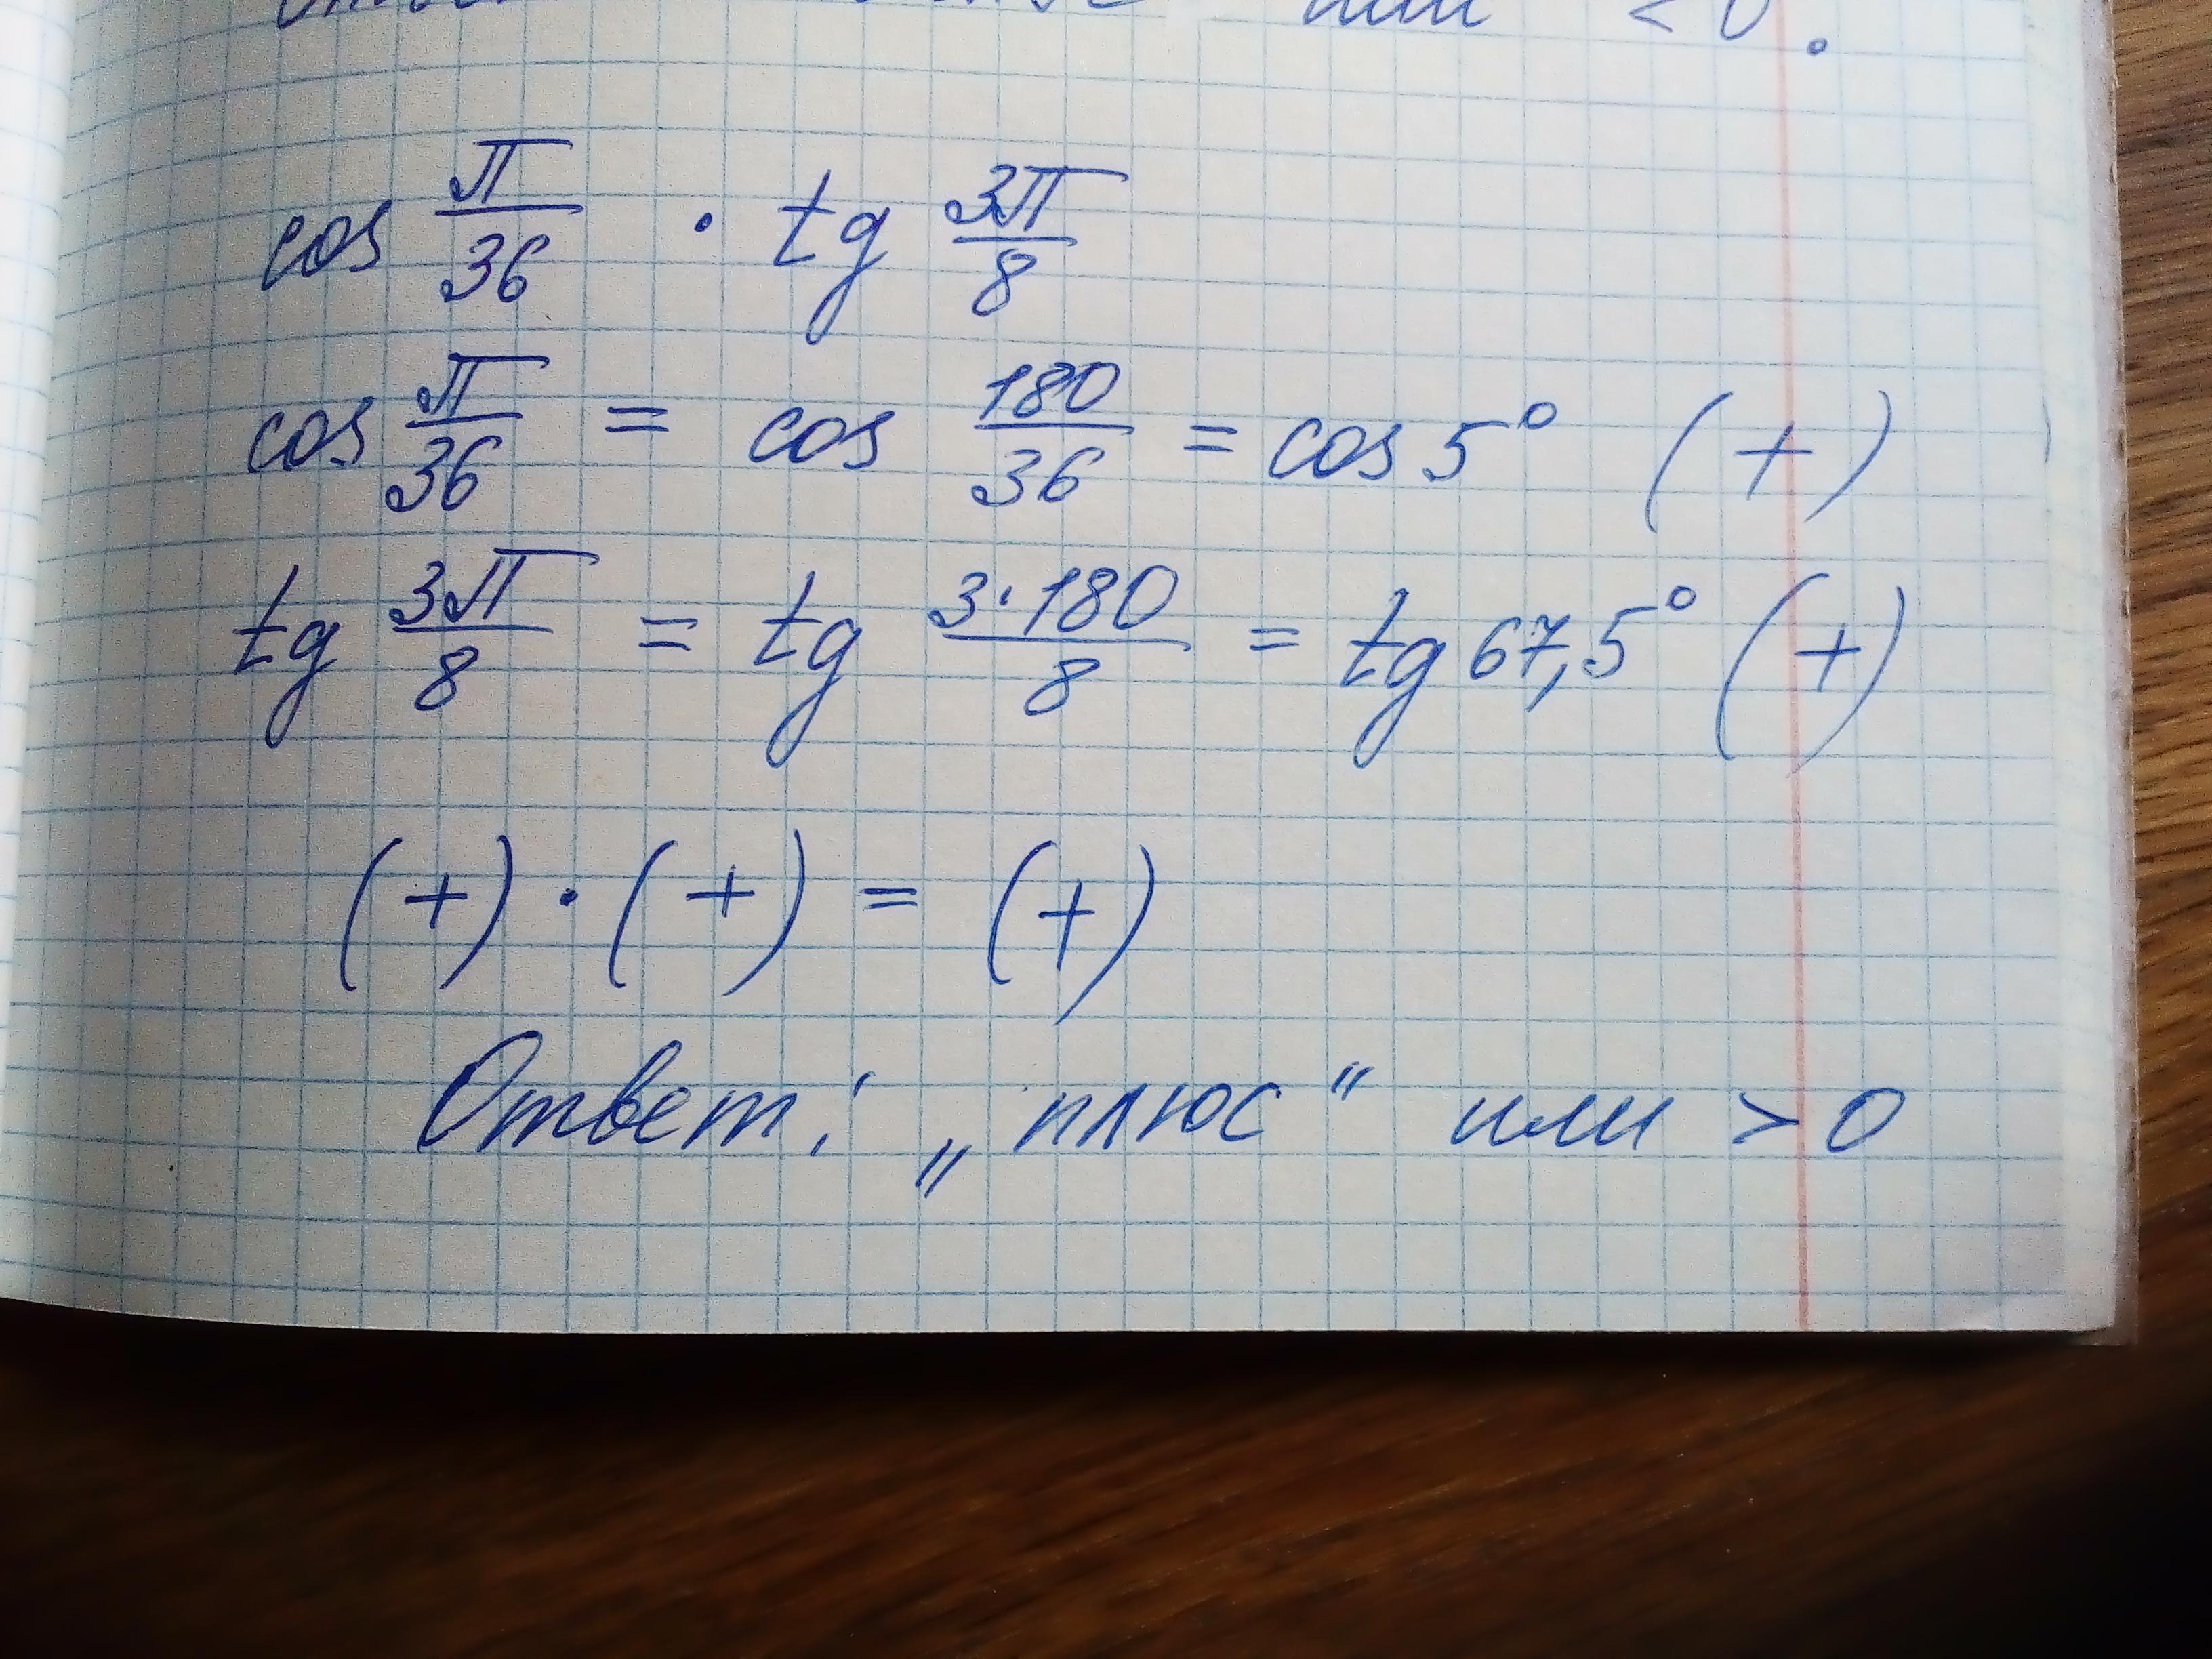 или < 0.
cos π/36 · tg 3π/8
cos π/36 = cos 180/36 = cos 5° (+)
tg 3π/8 = tg 3·180/8 = tg 67,5° (+)
(+) · (+) = (+)
Ответ: „плюс“ или > 0